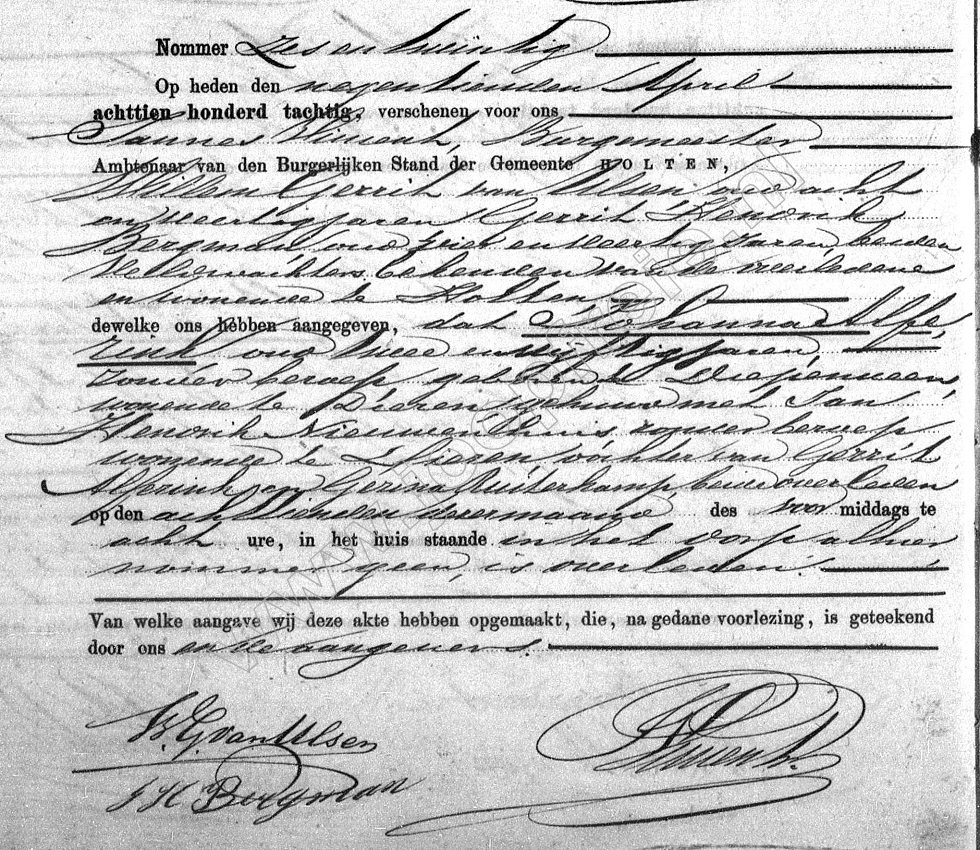 Nommer Zes en twintig
Op heden den negentienden April
achttien honderd tachtig, verschenen voor ons
Jannes Kliment, Burgemeester
Ambtenaar van den Burgerlijken Stand der Gemeente HOLTEN,
Willem Gerrit van Ulsen, oud acht
en veertig jaren, Gerrit Hendrik
Bergman oud vier en veertig Jaren, beiden
Veldwachters, bekenden van de overledene
en wonende te Holten,
dewelke ons hebben aangegeven, dat Johanna Alfe
rink oud twee en vijftig jaren,
zonder beroep, geboren te Diepenveen,
wonende te Dieren, gehuwd met Jan
Hendrik Nieuwenhuis, zonder beroep
wonende te Dieren, dochter van Gerrit
Alferink en Gerina Ruiterkamp, beiden overleden
op den achttienden dezer maand, des voor middags te
acht ure, in het huis staande in het dorp alhier
nommer geen, is overleden.
Van welke aangave wij deze akte hebben opgemaakt, die, na gedane voorlezing, is geteekend
door ons en de aangevers.
W G van Ulsen
G H Bergman